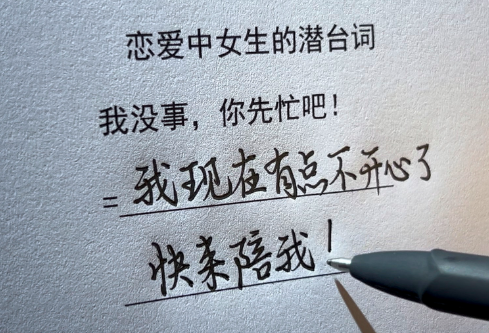 恋爱中女生的潜台词
我没事，你先忙吧！
=我现在有点不开心了
快来陪我！